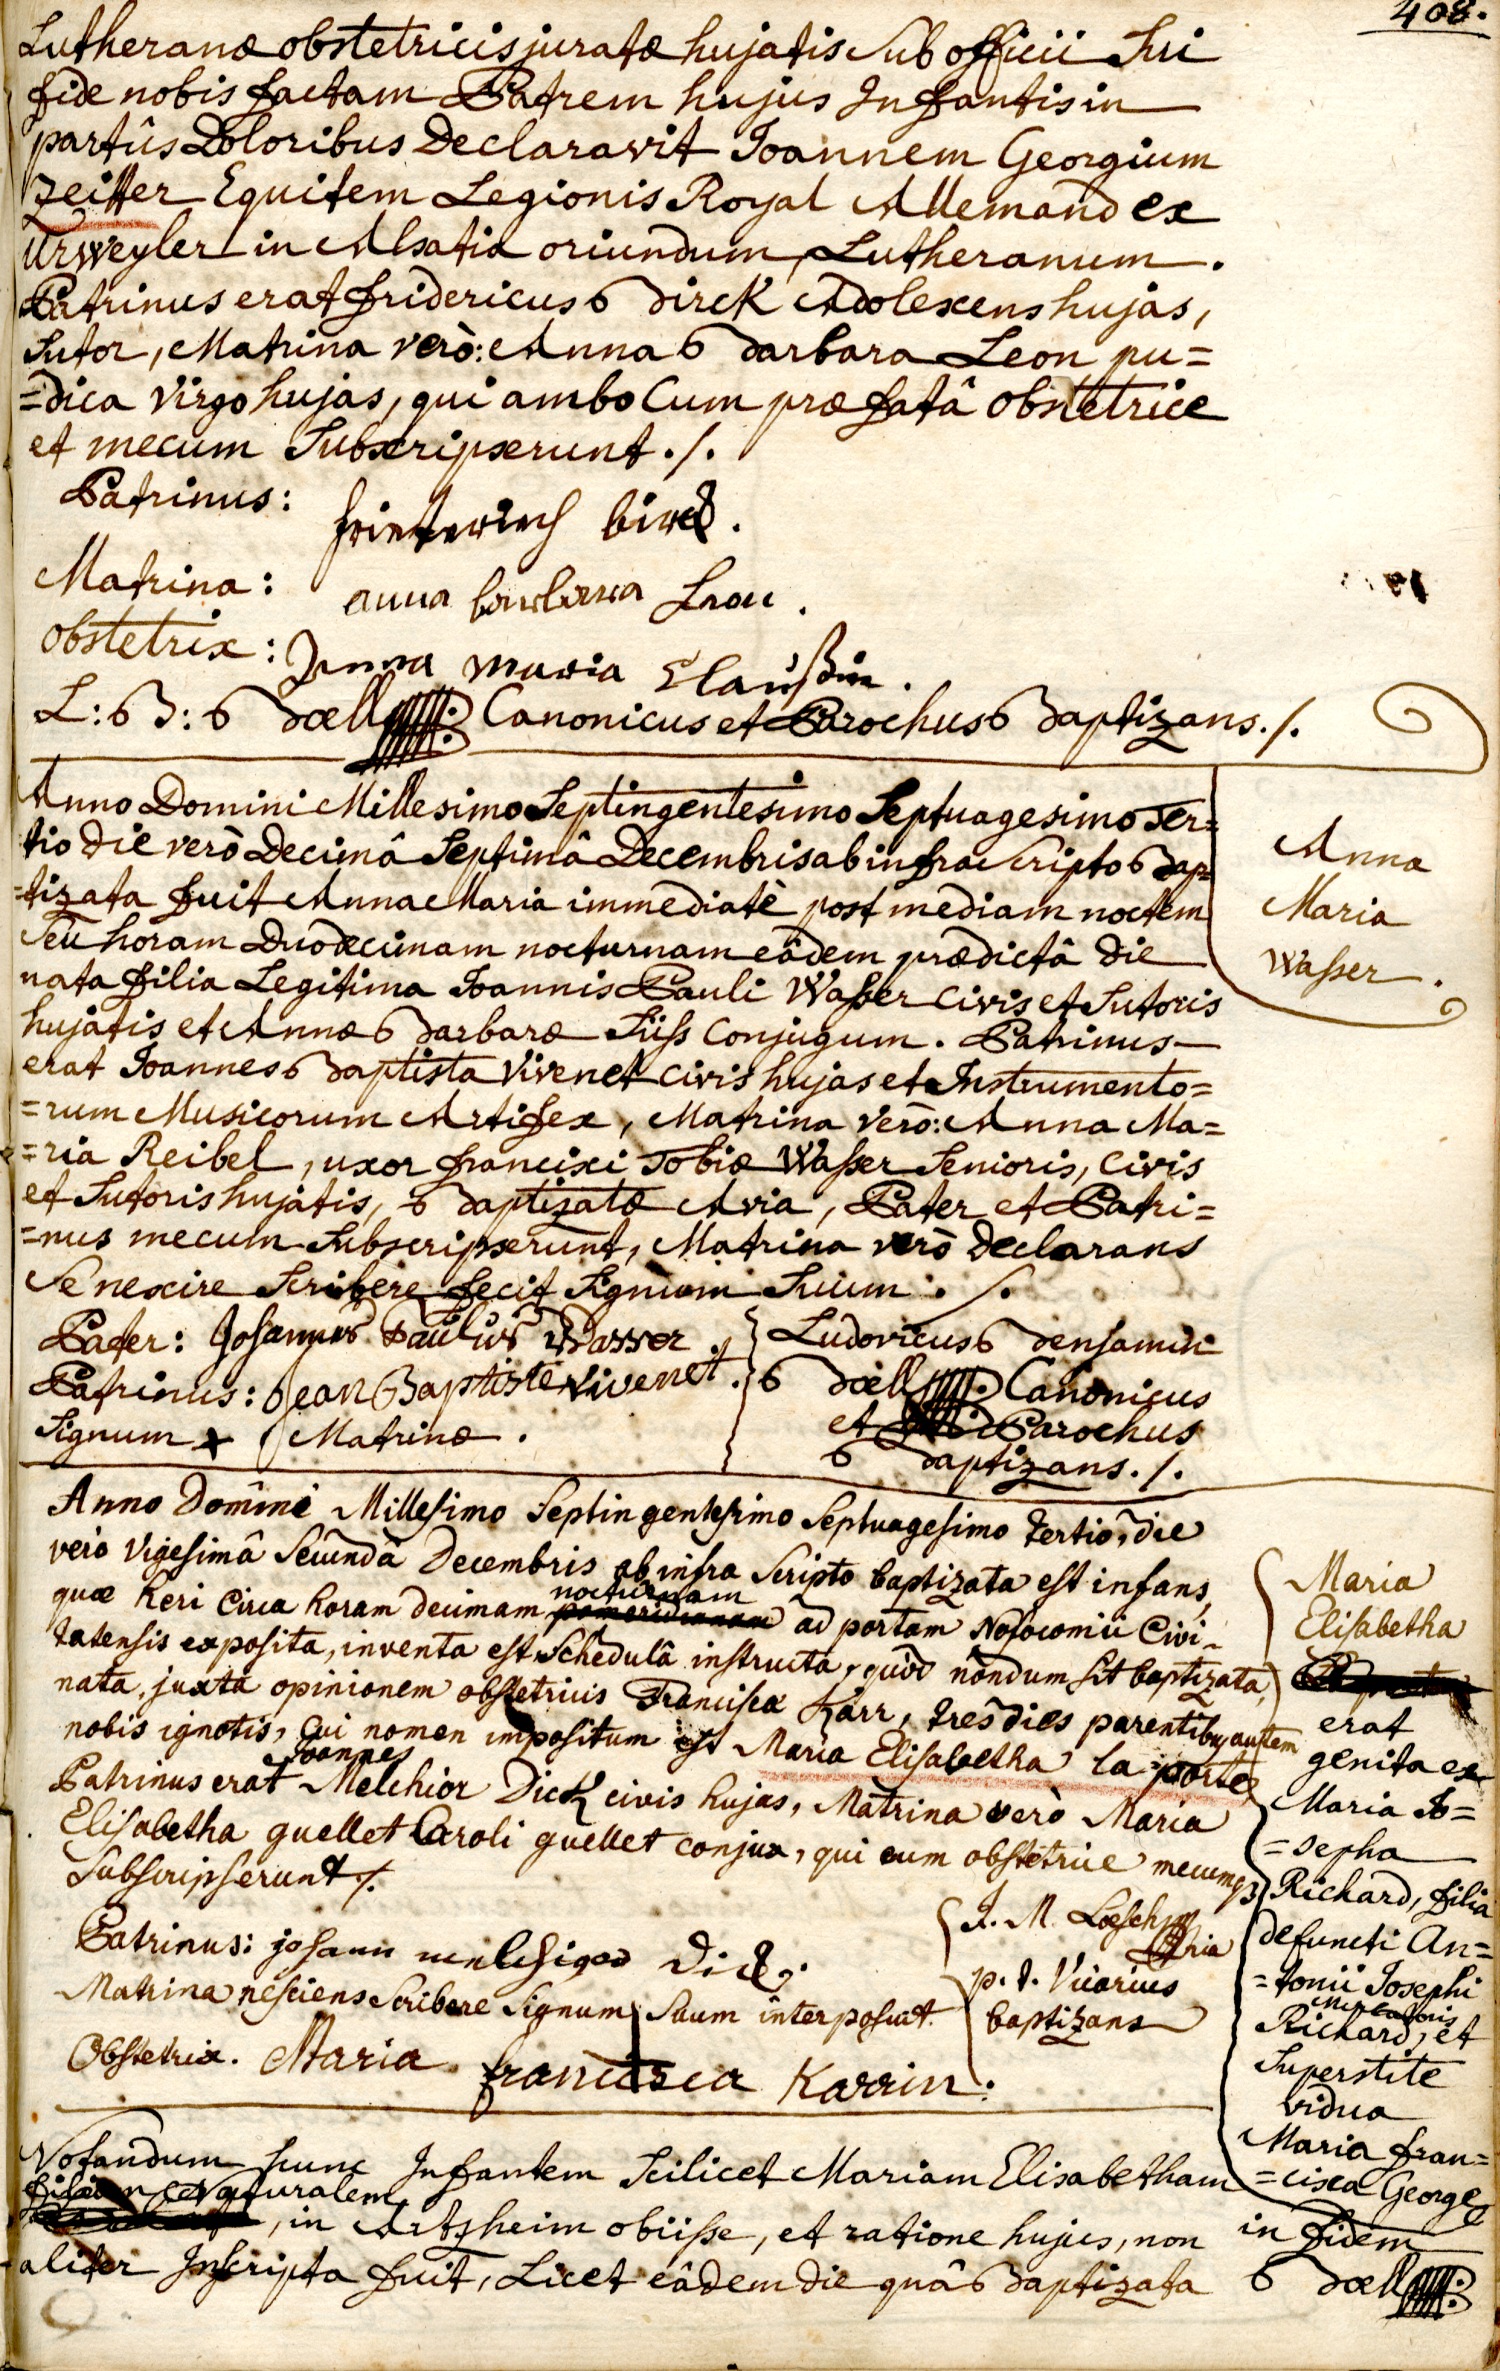 408.
Lutheranæ obstetricis juratæ hujatis sub officii sui
fide nobis factam Patrem hujus Infantis in
partûs Doloribus Declaravit Joannem Georgium
Zeitter Equitem Legionis Royal Allemand ex
Urweyler in Alsatia oriundum, Lutheranum.
Patrinus erat fridericus Birck Adolescens hujas,
Sutor, Matrina verò: Anna Barbara Leon pu=
=dica Virgo hujas, qui ambo Cum præfatâ obstetrice
et mecum Subscripserunt ./.
Patrinus: friederich birck.
Matrina: anna barbara Leon.
obstetrix: Anna maria Claußin.
L: B: Bœll Canonicus et Parochus Baptizans ./.
Anno Domini Millesimo Septingentesimo Septuagesimo Ter=
tio die verò Decimâ Septimâ Decembris ab infra scripto Bap=
=tizata fuit Anna Maria immediatè post mediam noctem
seu horam Duodecimam nocturnam eâdem prædictâ die
nata filia Legitima Joannis Pauli Wasser Civis et Sutoris
hujatis et Annæ Barbaræ Süss Conjugum. Patrinus
erat Joannes Baptista Vivenet civis hujas et Instrumento=
=rum Musicorum Artifex, Matrina verò: Anna Ma=
=ria Reibel, uxor francisci Tobiæ Wasser Senioris, Civis
et Sutoris hujatis, Baptizatæ Avia, Pater et Patri=
=nus mecum Subscripserunt, Matrina verò declarans
se nescire Scribere fecit Signum Suum ./.
Anna
Maria
Wasser.
Pater: Johannes Paulus Wasser.
Patrinus: Jean Baptiste Vivenet.
Signum x Matrinæ.
Ludovicus Benjamin
Bœll Canonicus
et Parochus
Baptizans ./.
Anno Domini Millesimo Septingentesimo Septuagesimo tertio, die
verò Vigesimâ Secundâ Decembris ab infra Scripto baptizata est infans,
quæ heri Circa horam decimam nocturnam ad portam Nosocomii Civi-
tatensis exposita, inventa est Schedulâ instructa, quod nondum sit baptizata,
nata, juxta opinionem obstetricis Franciscæ Karr, tres dies parentibus autem
nobis ignotis, Cui nomen impositum est Maria Elisabetha la porte
Patrinus erat Joannes Melchior Dick civis hujas, Matrina verò Maria
Elisabetha guellet Caroli guellet conjux, qui cum obstetrice mecumq3
Subscripserunt ./.
Patrinus: johann melchior Dick.
Matrina nesciens Scribere Signum Suum interposuit.
Obstetrix. Maria francisca Karrin.
J. M. Loesch
p. t. Vicarius
baptizans
Maria
Elisabetha
erat
genita ex
Maria Jo=
=sepha
Richard, filia
defuncti An=
=tonii Josephi
Richard, et
Superstite
vidua
Maria fran=
=cisca George
in fidem
Bœll
Notandum hunc Infantem Scilicet Mariam Elisabetham
filiam Naturalem, in Artzheim obiisse, et ratione hujus, non
aliter Inscripta fuit, Licet eâdem die quâ Baptizata